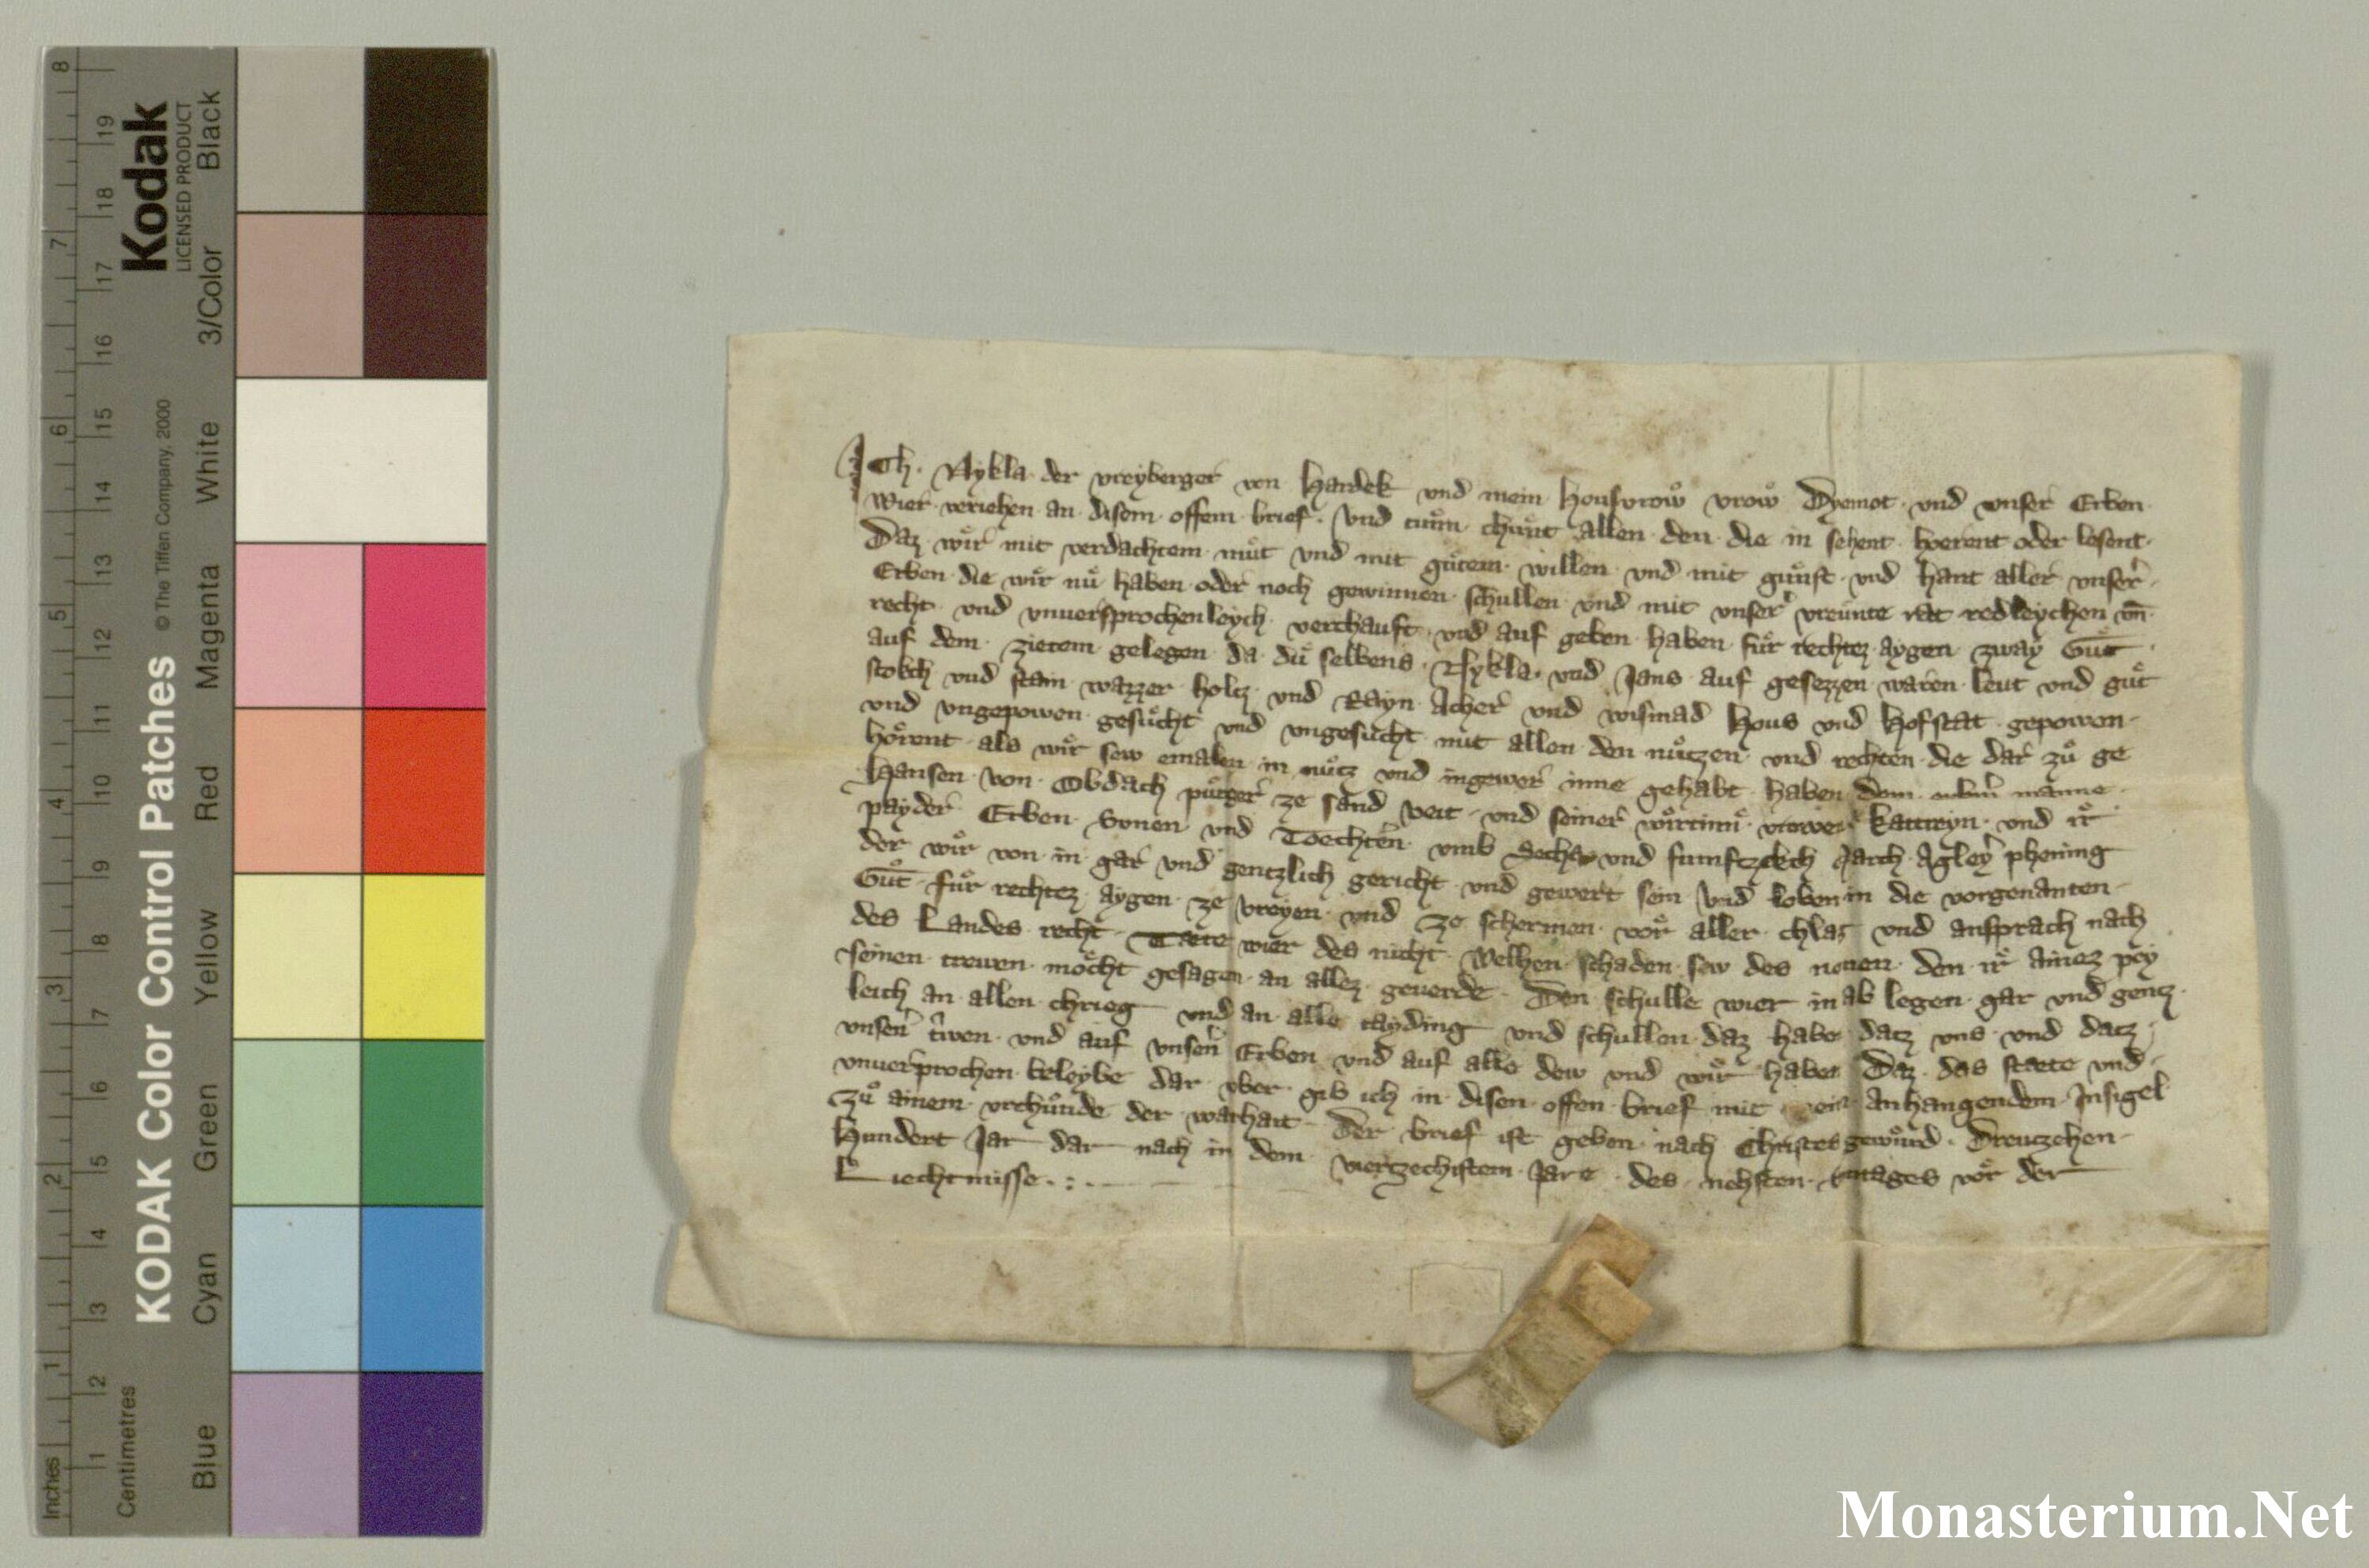 KODAK Color Control Patches © The Tiffen Company, 2000
Kodak
LICENSED PRODUCT
Blue Cyan Green Yellow Red Magenta White 3/Color Black
Inches 1 2 3 4 5 6 7 8
Centimetres 1 2 3 4 5 6 7 8 9 10 11 12 13 14 15 16 17 18 19
ICh · Nykla · der vreyberger von Hardek vnd mein housvrowͦ vrowͦ Dyemot · vnd vnser Erben
wier veriehen · an disem · offem · brief · Vnd tuͤn chunt allen · den · die in sehent · hoerent oder lesent ·
Daz wir mit verdachtem · muͤt vnd mit guͤtem · willen vnd mit guͤnst · vnd hant aller vnser ·
Erben · die wir nuͤ haben · oder noch gewinnen · schullen vnd mit vnser vreunte rat redleychen vn̄
recht · vnd vnuersprochenleych · verchauft vnd auf geben haben fuͤr rechtez aygen zway Guͤt ·
auf dem · zierem gelegen · da duͤ selbens · Nykla · vnd Jans auf gesezzen waren · leut vnd guͤt
stokch vnd stain wazzer holtz · vnd Rayn Acher vnd wismad Hous vnd Hofstat · gepowen ·
vnd vngepowen · gesuͤcht vnd vngesucht mit allen den nuͤtzen vnd rechten · die dar zuͦ ge
hoͤrent · als wir sew emalen in nuͤtz vnd ingewer inne gehabt · haben dem manne ·
Hansen von Obdach puͤrger ze sand veit · vnd seiner wuͤrtinn vrowen kattreyn · vnd ir
payder Erben · Sonen vnd Toechtern vmb Sechs vnd fumftzkch March Agleyer phening
der wir von in gar vnd gentzlich gericht · vnd gewert sein Vnd loben in die vorgenanten ·
Guͤt · fuͤr rechtez aygen · ze vreyen · vnd ze schermen · vor aller · chlag vnd ansprach nach
des Landes recht · Taete wier des nicht · Welhen schaden · sew des nemen · den ir ainez pey
seinen trewen · moͤcht gesagen · an allez geuerde · Den schulle wier in ab legen · gar vnd gentz
leich an allen chrieg vnd an alle tayding vnd schullen daz habe datz vns vnd datz
vnsern trwen · vnd auf vnsern Erben vnd auf alle dew vnd wir haben Daz das staete vnd
vnuersprochen beleybe dar vber gib ich in disen offen · brief mit anhangendem Insigel
zuͦ ainem vrchuͤnde der warhait Der brief ist geben nach Christes gewuͤrd · Dreutzehen
Hundert Jar dar nach in dem viertzechistem Jare · des · nehsten · tages vor der
Liechtmisse
Monasterium.Net